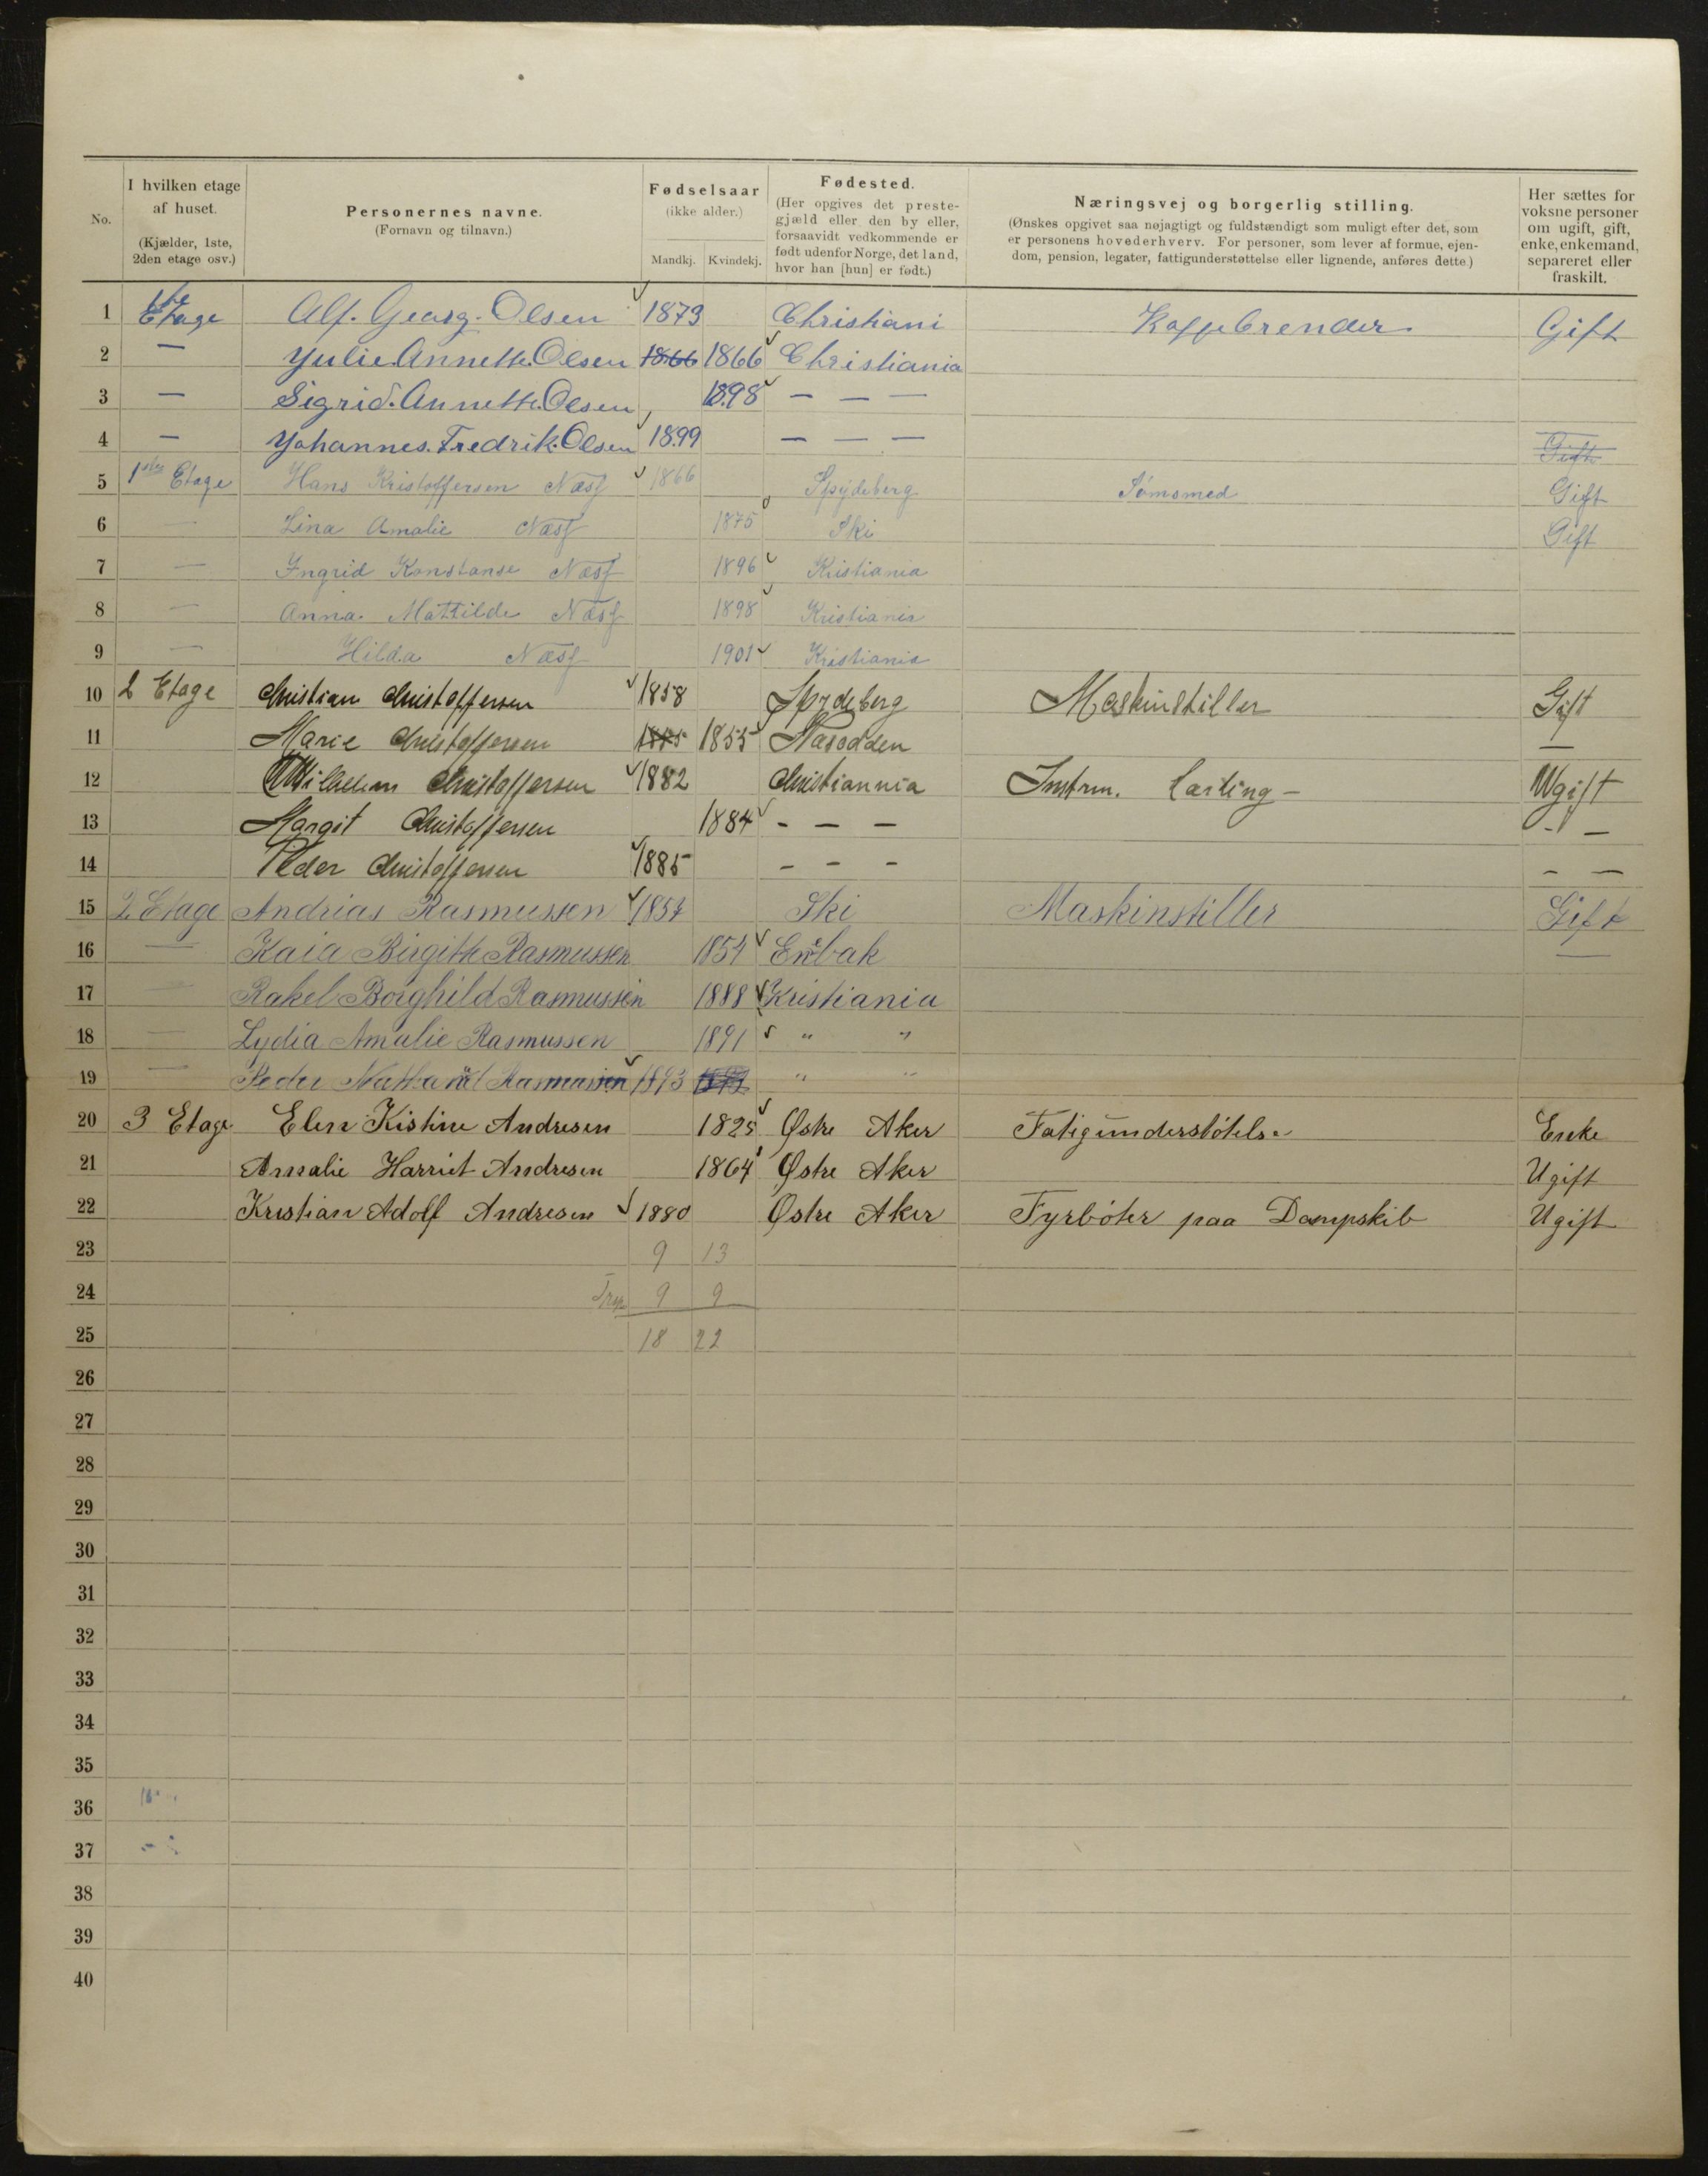 No. | I hvilken etage af huset. (Kjælder, 1ste, 2den etage osv.) | Personernes navne. (Fornavn og tilnavn.) | Fødselsaar (ikke alder.) Mandkj. | Kvindekj. | Fødested. (Her opgives det prestegjæld eller den by eller, forsaavidt vedkommende er født udenfor Norge, det land, hvor han [hun] er født.) | Næringsvej og borgerlig stilling. (Ønskes opgivet saa nøjagtigt og fuldstændigt som muligt efter det, som er personens hovederhverv. For personer, som lever af formue, ejendom, pension, legater, fattigunderstøttelse eller lignende, anføres dette.) | Her sættes for voksne personer om ugift, gift, enke, enkemand, separeret eller fraskilt.
1 1ste Etage Alf. Georg. Olsen 1873 Christiani Kaffebrender. Gift
2 — Julie. Annette. Olsen 1866 1866 Christiania
3 — Sigrid. Annette. Olsen, 1898 — — —
4 — Johannes. Fredrik. Olsen 1899 — — — Gift
5 1ste Etage Hans Kristoffersen Næss 1866 Spydeberg Sømsmed Gift
6 — Lina Amalie Næss 1875 Ski Gift
7 — Yngrid Konstanse Næss 1896 Kristiania
8 — Anna Mattilde Næss 1898 Kristiania
9 — Hilda Næss 1901 Kristiania
10 2 Etage Christian Christoffersen 1858 Spydeberg Maskinstiller Gift
11 Marie Christoffersen 1855 Næsodden —
12 Wilhelm Christoffersen 1882 Christiannia Instrm. Lærling — Ugift
13 Margit Christoffersen 1884 — — — - —
14 Peder Christoffersen 1885 — - - - —
15 2 Etage Andrias Rasmussen 1857 Ski Maskinstiller Gift
16 — Kaia Birgitte Rasmussen 1854 Enebak —
17 — Rakel Borghild Rasmussen 1888 Kristiania
18 — Lydia Amalie Rasmussen 1891 " "
19 — Peder Nathanael Rasmussen 1893 " "
20 3 Etage Elen Kistine Andresen 1825 Østre Aker Fatigunderstøtelse Encke
21 Amalie Harriet Andresen 1864 Østre Aker Ugift
22 Kristian Adolf Andresen 1880 Østre Aker Fyrbøter paa Dampskib Ugift
23 9 13
24 9 9
25 18 22
26
27
28
29
30
31
32
33
34
35
36
37
38
39
40